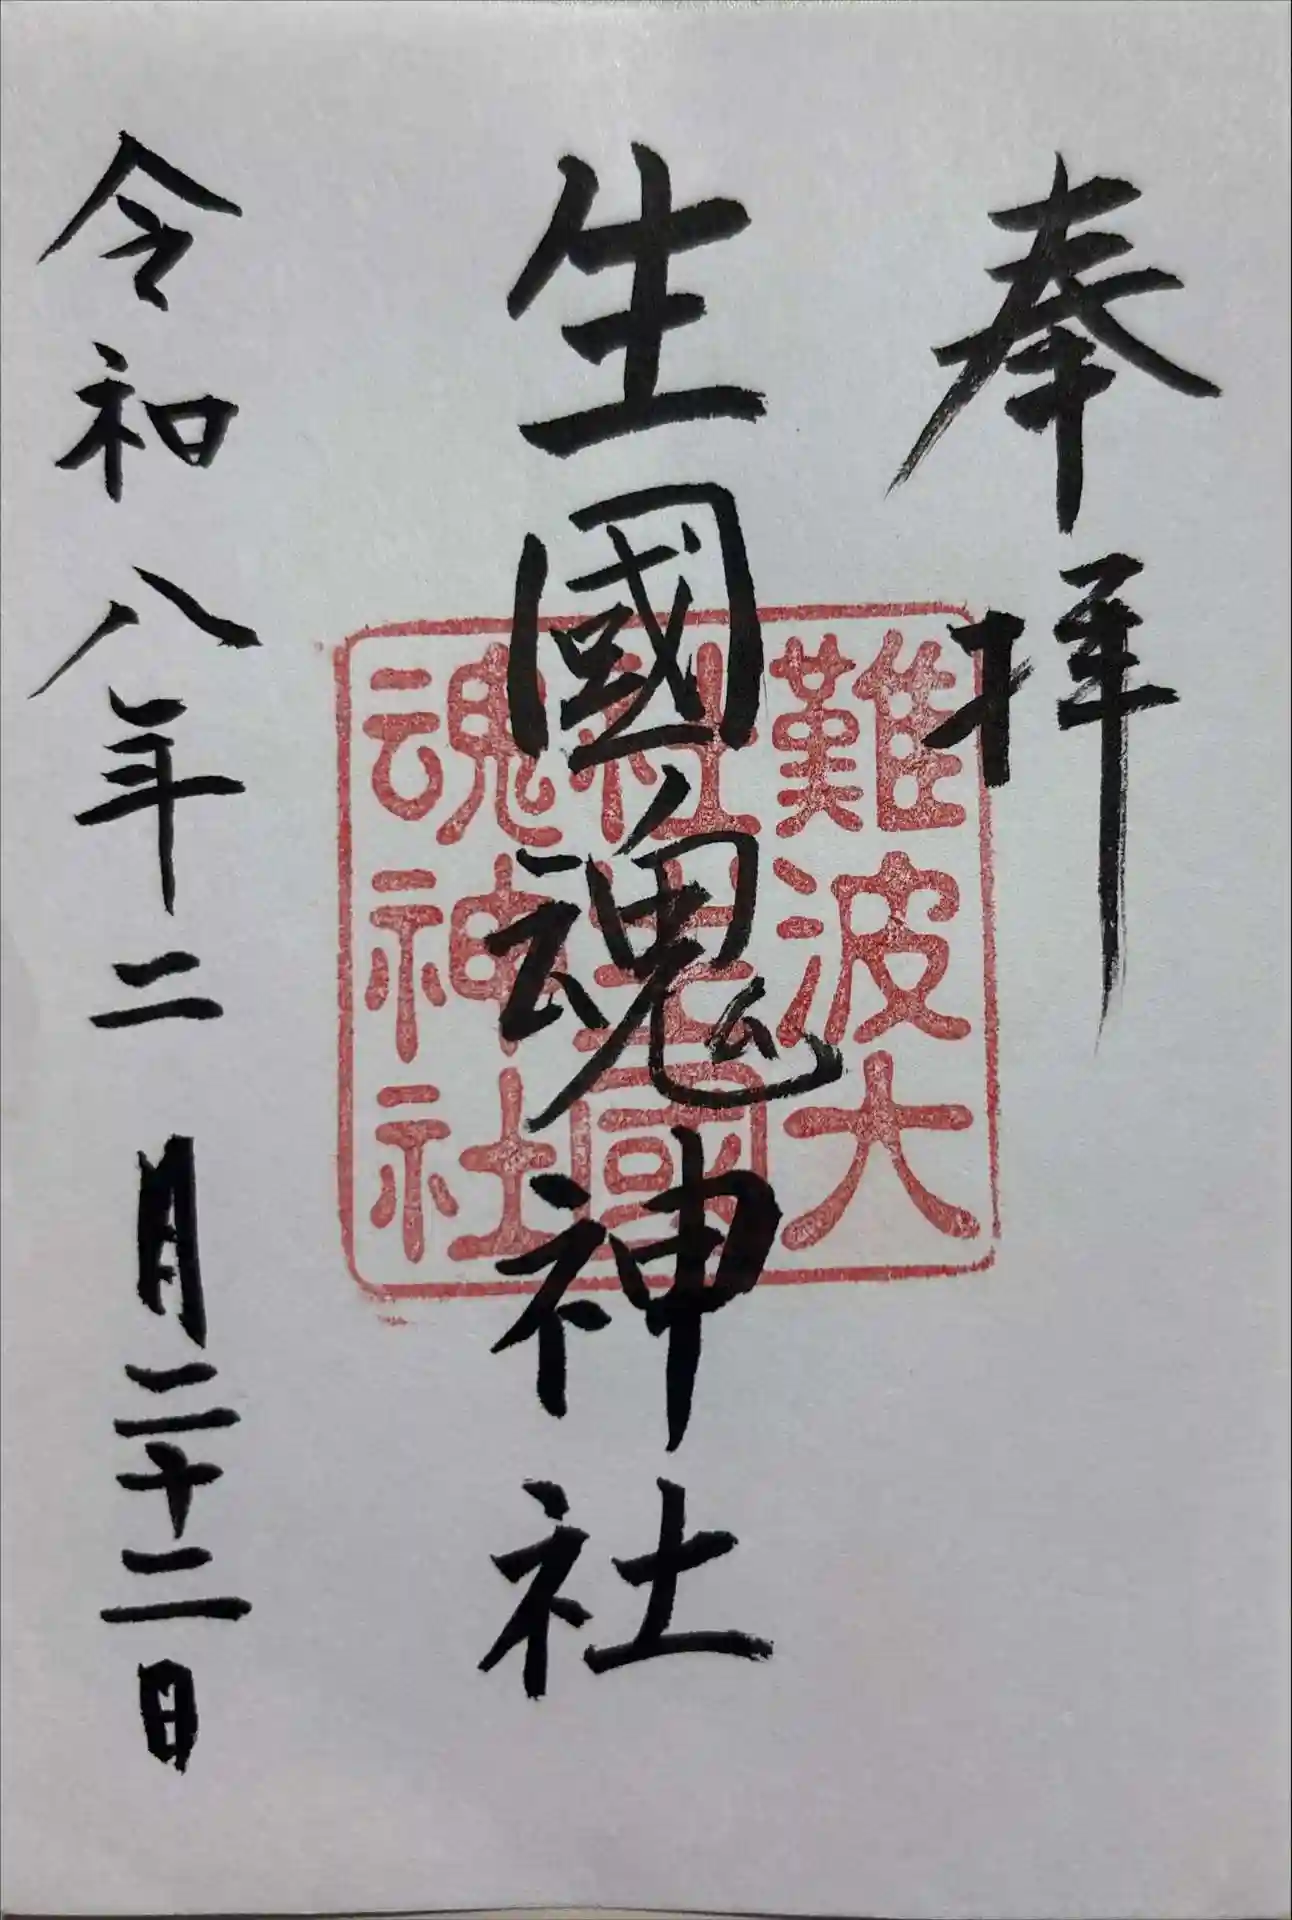 奉拝
生國魂神社
令和八年二月二十二日
難波大
社生國
魂神社